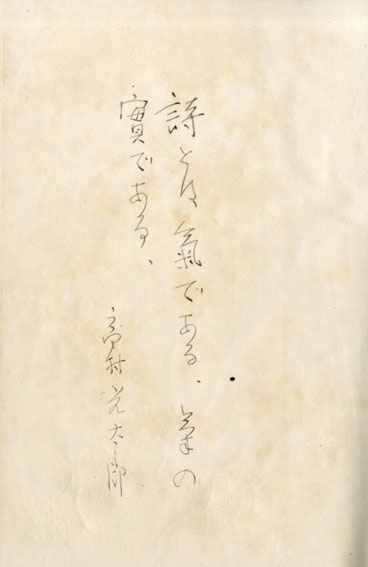 詩とは氣である、氣の
實である、
高村光太郎